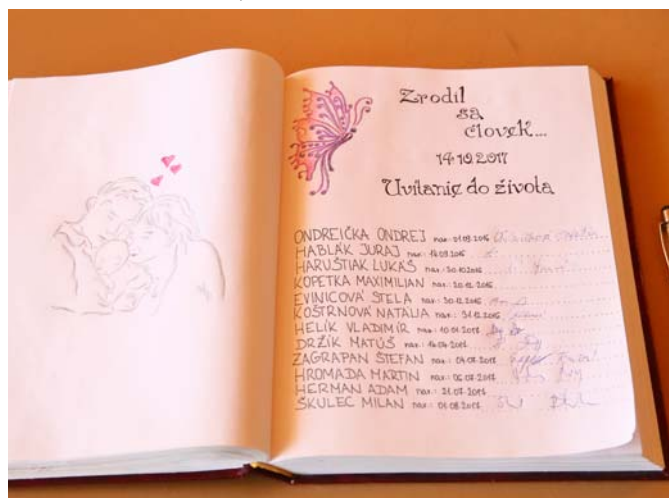 Zrodil
sa
človek...
14.10.2017
Uvítanie do života
ONDREIČKA ONDREJ nar.: 01.09.2016
HABLÁK JURAJ nar.: 14.09.2016
HARUŠTIAK LUKÁŠ nar.: 30.10.2016
KOPETKA MAXIMILIAN nar.: 20.12.2016
EVINICOVÁ STELA nar.: 30.12.2016
KOŠTRNOVÁ NATÁLIA nar.: 31.12.2016
HELÍK VLADIMÍR nar.: 10.01.2017
DRŽÍK MATÚŠ nar.: 14.04.2017
ZAGRAPAN ŠTEFAN nar.: 04.07.2017
HROMADA MARTIN nar.: 06.07.2017
HERMAN ADAM nar.: 21.07.2017
ŠKULEC MILAN nar.: 01.08.2017